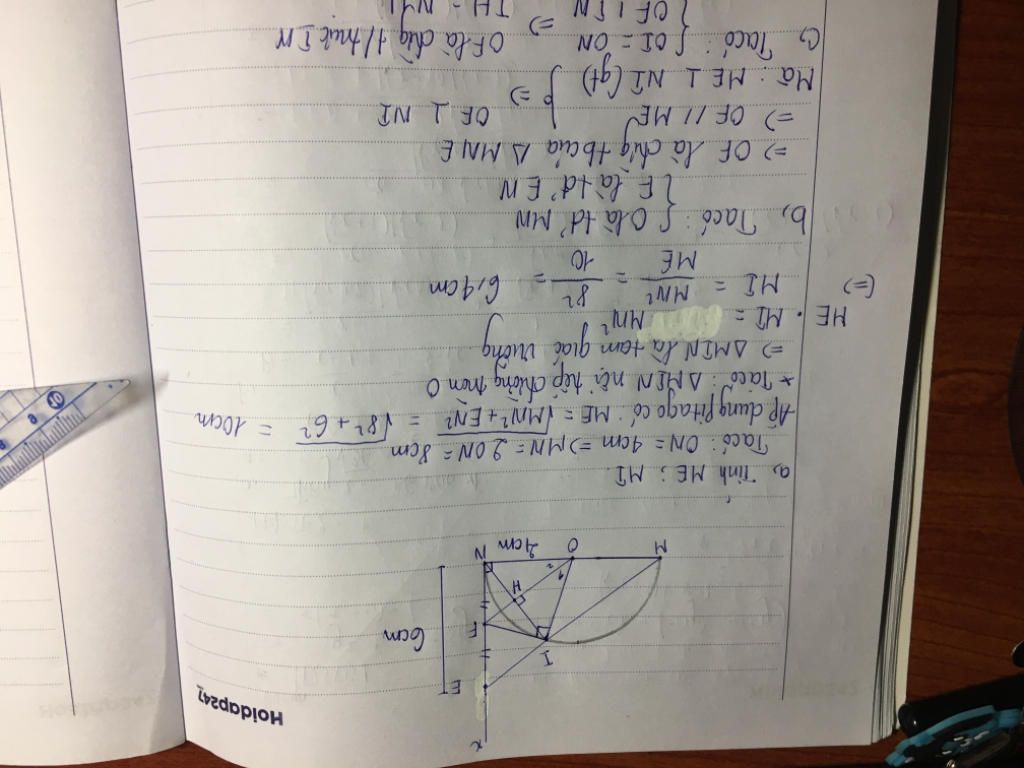 Hoidap247
x
E
I
F
6cm
H
1 2
M
O
4cm
N
a, Tính ME ; MI.
Ta có : ON = 4cm => MN = 2 ON = 8cm
Áp dụng Pitago có : ME = √MN² + EN² = √8² + 6² = 10cm
* Ta có : Δ MIN nội tiếp đường tròn O
=> Δ MIN là tam giác vuông
ME . MI = MN²
(=>) MI = MN² / ME = 8² / 10 = 6,4cm
b, Ta có : { O là tđ' MN
{ F là tđ' EN
=> OF là đg tb của Δ MNE
=> OF // ME
Mà : ME ⊥ NI (gt) } => OF ⊥ NI
c, Ta có : { OI = ON
{ OF ⊥ IN => OF là đg t/trực IN